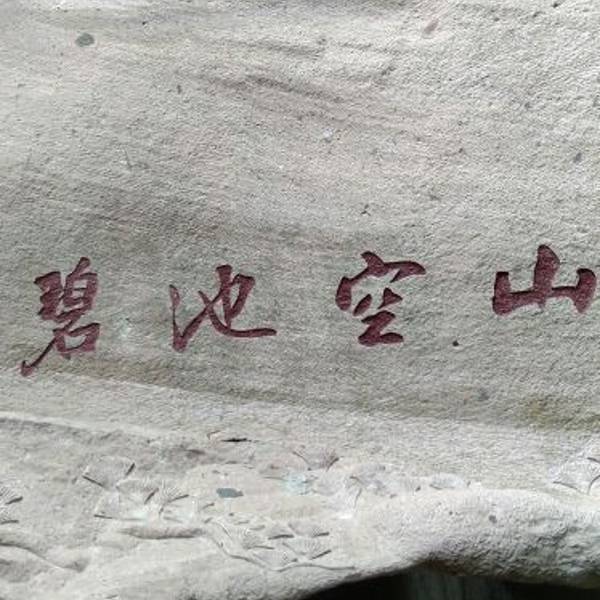 山空池碧